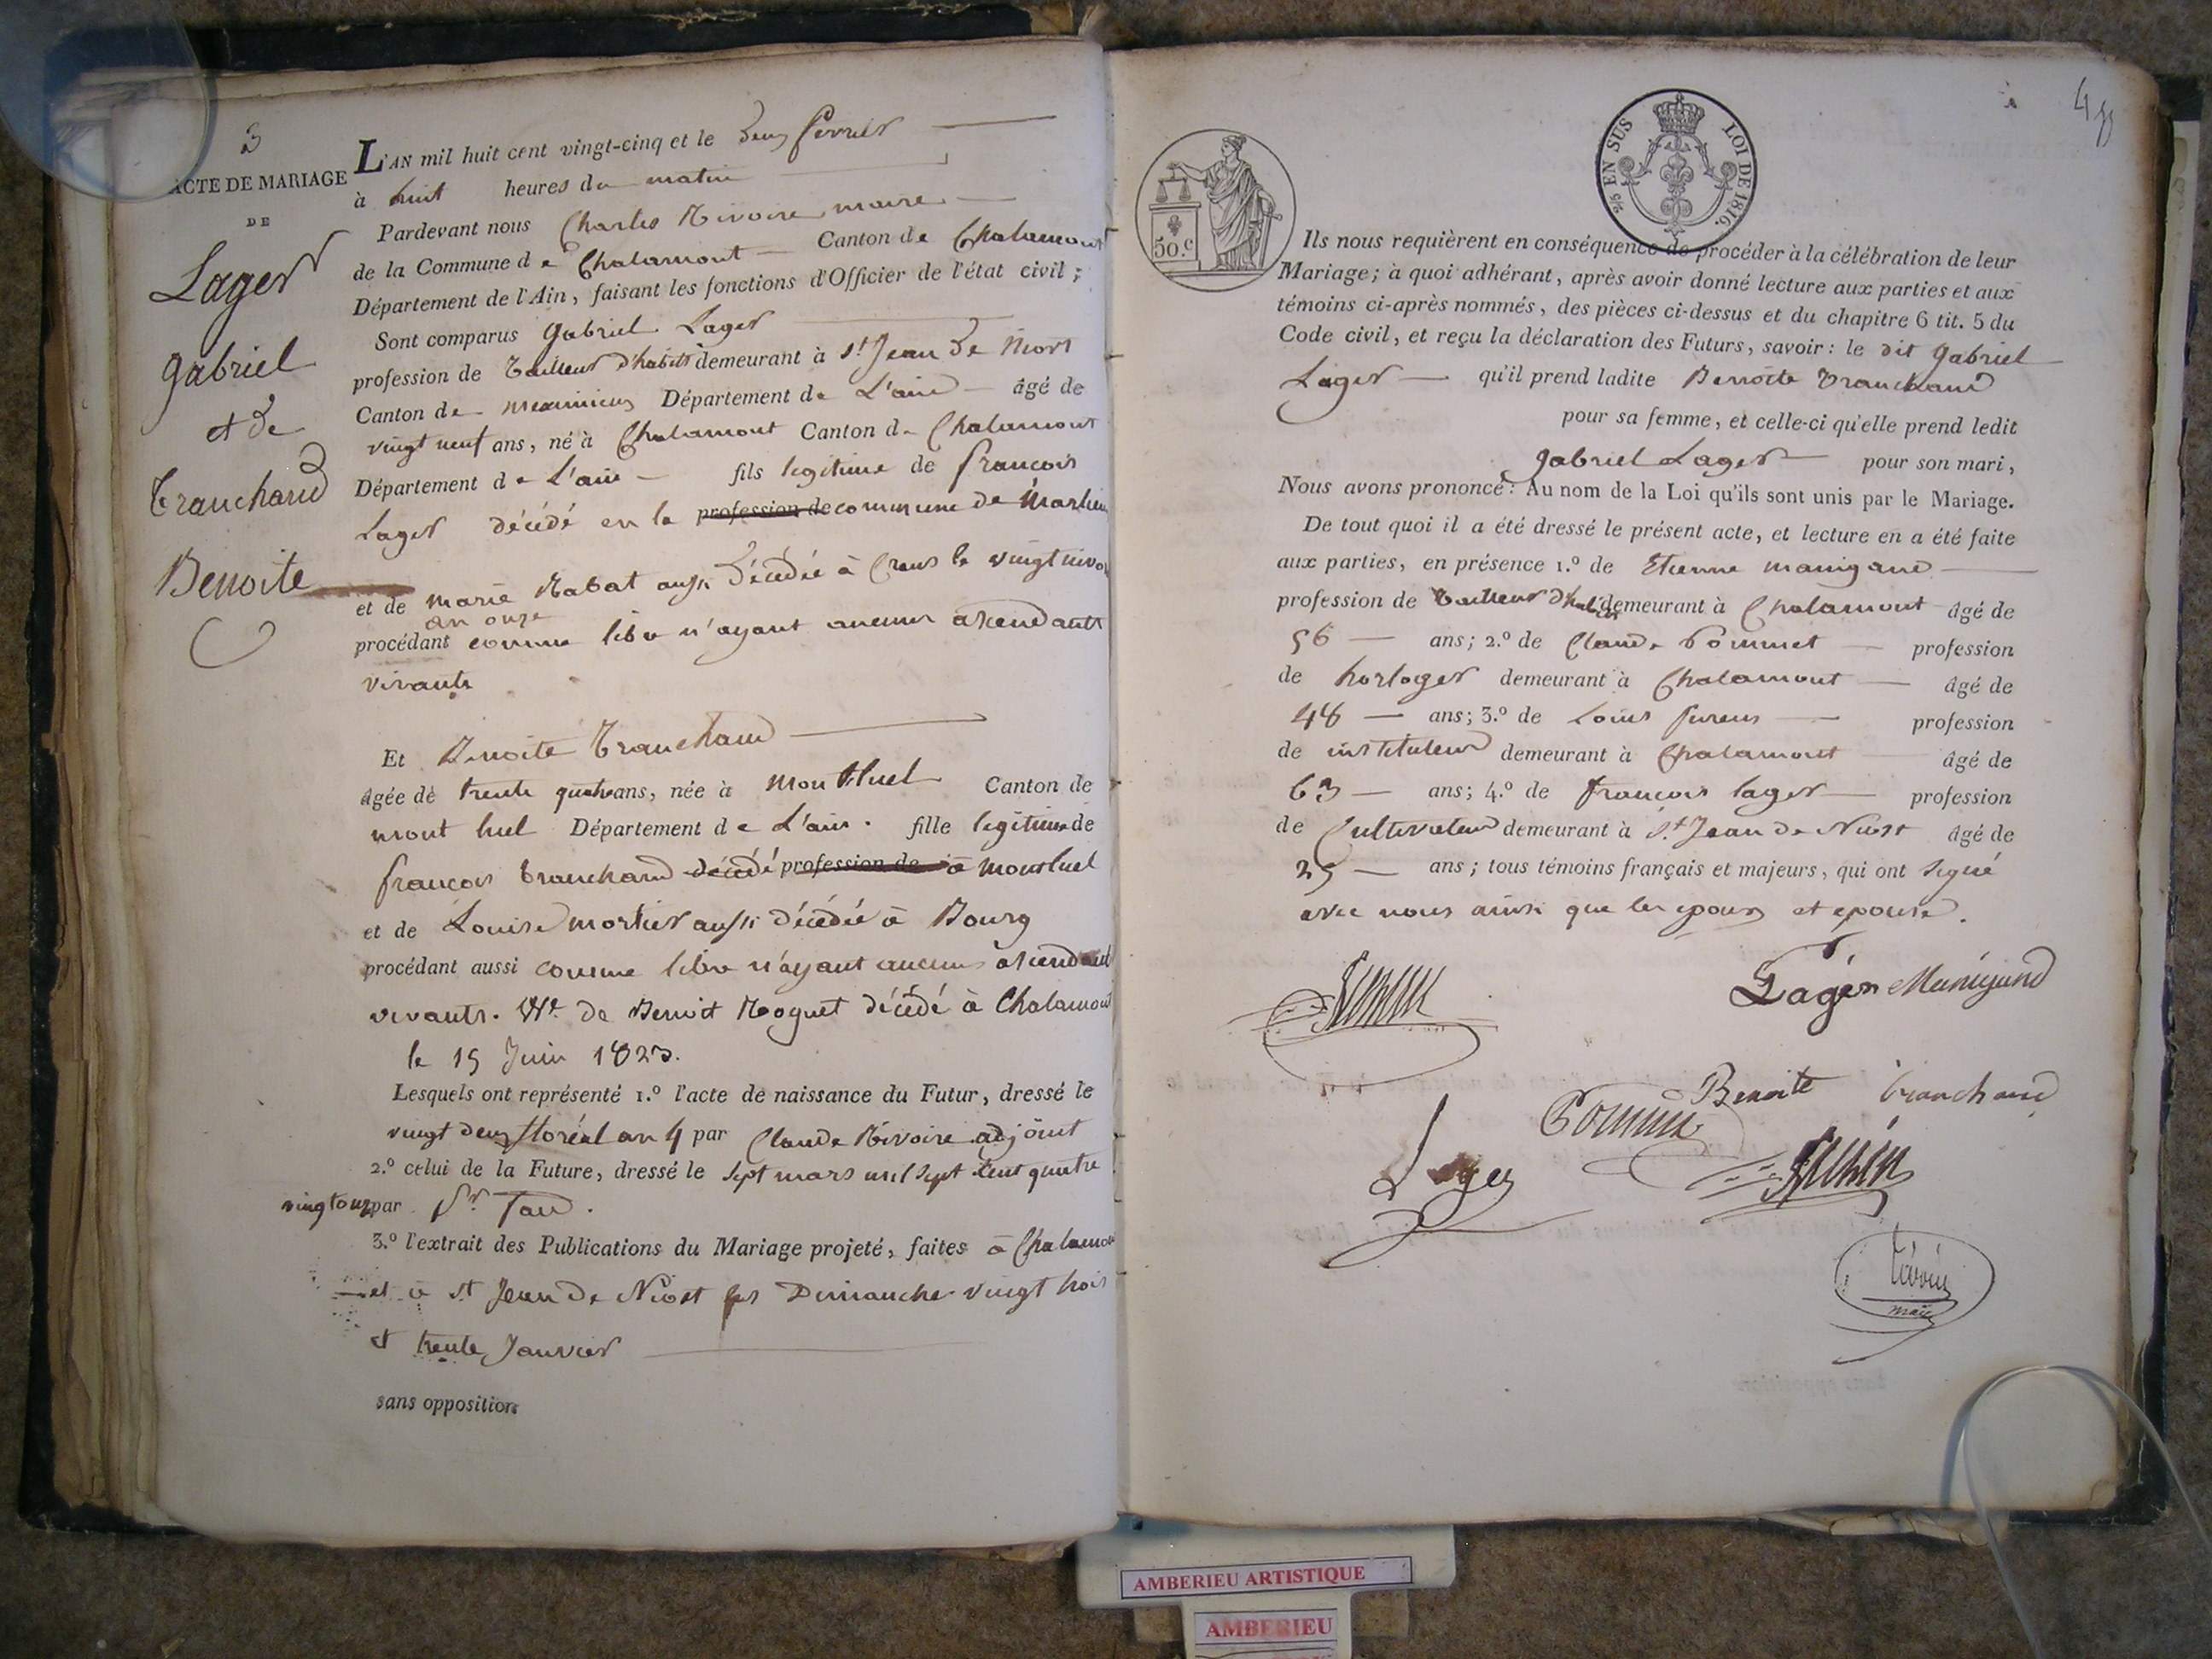 3
ACTE DE MARIAGE
DE
Lager
gabriel
et de
Tranchand
Benoite
L'AN mil huit cent vingt-cinq et le deux fevrier
à huit heures du matin
Pardevant nous Charles Rivoire maire
de la Commune de Chalamont Canton de Chalamont
Département de l'Ain, faisant les fonctions d'Officier de l'état civil;
Sont comparus gabriel Lager
profession de Tailleur d'habits demeurant à st Jean de Niort
Canton de meximieux Département de L'ain âgé de
vingt neuf ans, né à Chalamont Canton de Chalamont
Département de L'ain fils legitime de francois
Lager décédé en la profession de commune de Marlieu
et de marie Rabat aussi décédée à Crans le vingt nivo
an onze
procédant comme libre n'ayant aucuns ascendants
vivants
Et Benoite Tranchand
âgée de trente quatre ans, née à Montluel Canton de
mont luel Département de L'ain. fille legitime de
francois Tranchand décédé profession de à Montluel
et de Louise mortier aussi décédée à Bourg
procédant aussi comme libre n'ayant aucuns ascendant
vivants. Ve de Benoit Roguet décédé à Chalamont
le 15 Juin 1823.
Lesquels ont représenté 1.º l'acte de naissance du Futur, dressé le
vingt deux floréal an 4 par Claude Rivoire adjoint
2.º celui de la Future, dressé le sept mars mil sept cent quatre
vingt onze par Sr.
3.º l'extrait des Publications du Mariage projeté, faites à Chalamon
et à st Jean de Niost les Dimanche vingt trois
et trente Janvier
sans opposition
4
50.c
EN SUS
LOI DE 1816.
Ils nous requièrent en conséquence de procéder à la célébration de leur
Mariage; à quoi adhérant, après avoir donné lecture aux parties et aux
témoins ci-après nommés, des pièces ci-dessus et du chapitre 6 tit. 5 du
Code civil, et reçu la déclaration des Futurs, savoir: le dit gabriel
Lager qu'il prend ladite Benoite Tranchand
pour sa femme, et celle-ci qu'elle prend ledit
gabriel Lager pour son mari,
Nous avons prononcé: Au nom de la Loi qu'ils sont unis par le Mariage.
De tout quoi il a été dressé le présent acte, et lecture en a été faite
aux parties, en présence 1.º de Etienne manigand
profession de Tailleur d'habits demeurant à Chalamont âgé de
56 ans; 2.º de Claude Pommet profession
de horloger demeurant à Chalamont âgé de
48 ans; 3.º de Louis profession
de instituteur demeurant à Chalamont âgé de
63 ans; 4.º de francois lager profession
de Cultivateur demeurant à St Jean de Niost âgé de
25 ans; tous témoins français et majeurs, qui ont signé
avec nous ainsi que les epoux et epouse.
Lager Manigand
Benoite tranchand
Lager
Rivoire
maire
AMBERIEU ARTISTIQUE
AMBERIEU